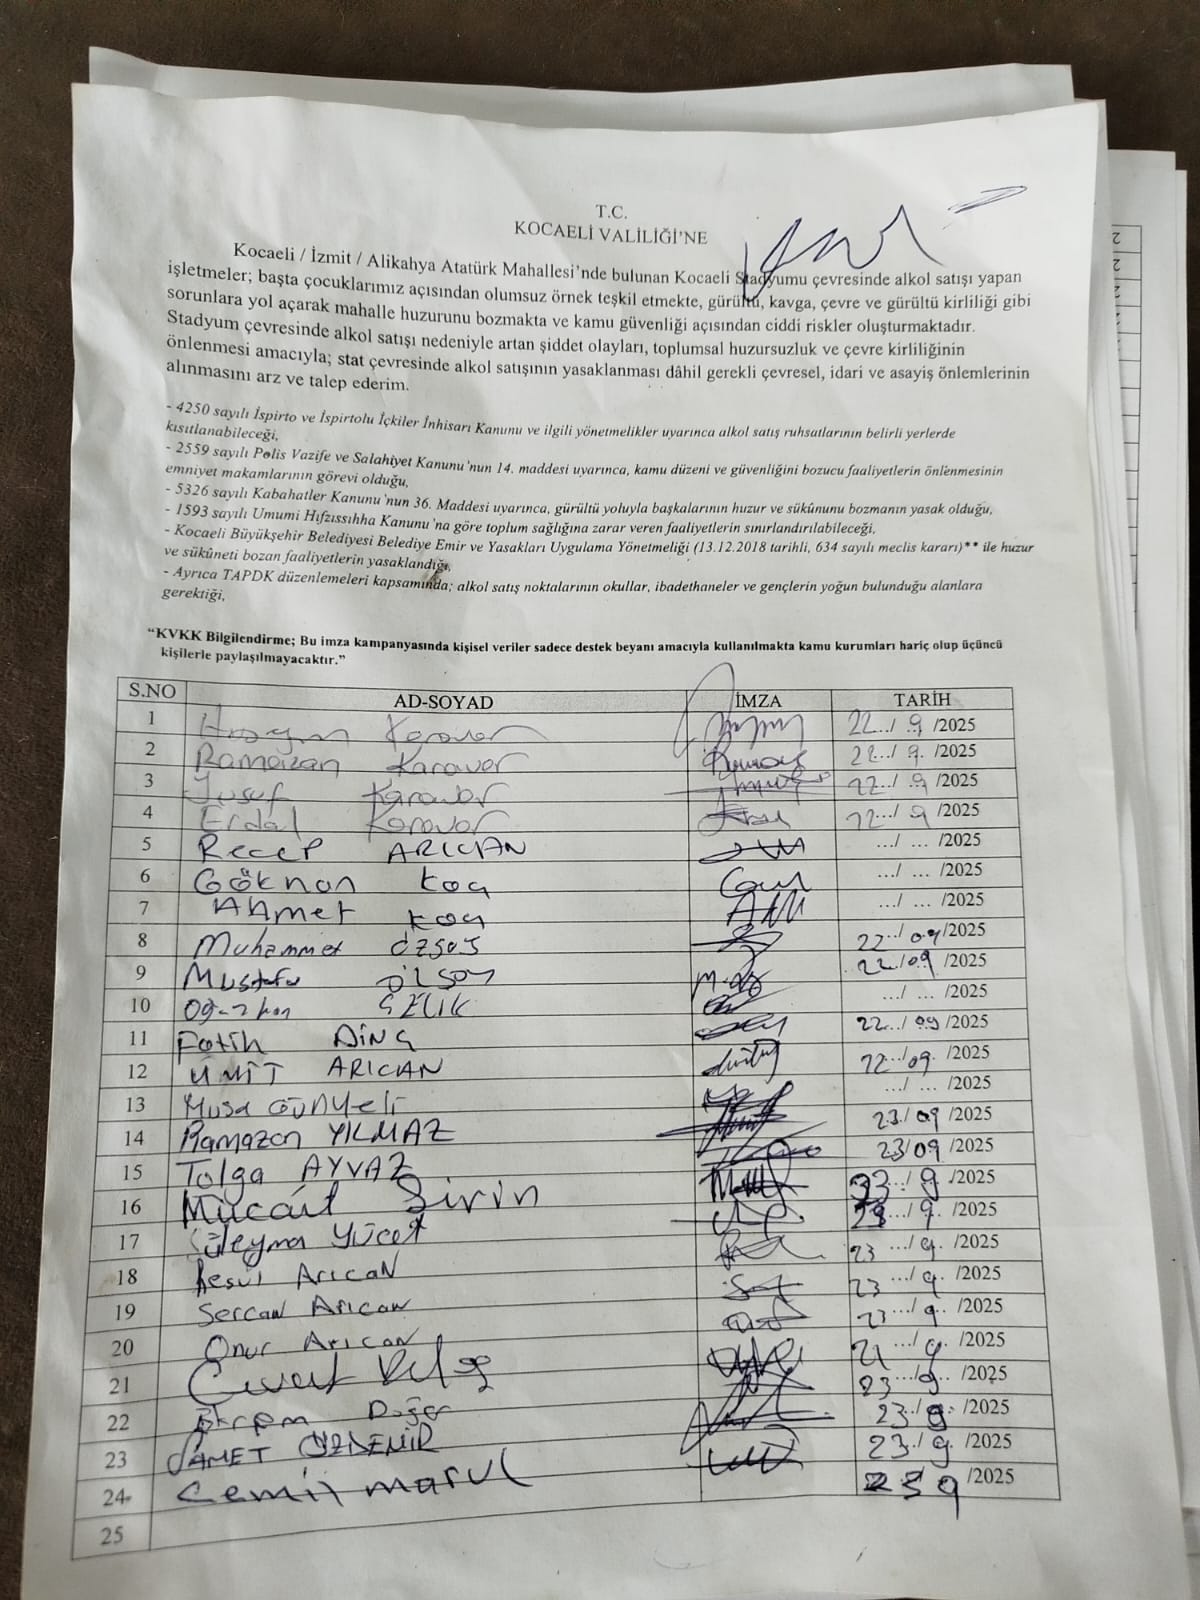 T.C.
KOCAELİ VALİLİĞİ'NE
Kocaeli / İzmit / Alikahya Atatürk Mahallesi'nde bulunan Kocaeli Stadyumu çevresinde alkol satışı yapan
işletmeler; başta çocuklarımız açısından olumsuz örnek teşkil etmekte, gürültü, kavga, çevre ve gürültü kirliliği gibi
sorunlara yol açarak mahalle huzurunu bozmakta ve kamu güvenliği açısından ciddi riskler oluşturmaktadır.
Stadyum çevresinde alkol satışı nedeniyle artan şiddet olayları, toplumsal huzursuzluk ve çevre kirliliğinin
önlenmesi amacıyla; stat çevresinde alkol satışının yasaklanması dâhil gerekli çevresel, idari ve asayiş önlemlerinin
alınmasını arz ve talep ederim.
- 4250 sayılı İspirto ve İspirtolu İçkiler İnhisarı Kanunu ve ilgili yönetmelikler uyarınca alkol satış ruhsatlarının belirli yerlerde
kısıtlanabileceği,
- 2559 sayılı Polis Vazife ve Salahiyet Kanunu'nun 14. maddesi uyarınca, kamu düzeni ve güvenliğini bozucu faaliyetlerin önlenmesinin
emniyet makamlarının görevi olduğu,
- 5326 sayılı Kabahatler Kanunu'nun 36. Maddesi uyarınca, gürültü yoluyla başkalarının huzur ve sükûnunu bozmanın yasak olduğu,
- 1593 sayılı Umumi Hıfzıssıhha Kanunu'na göre toplum sağlığına zarar veren faaliyetlerin sınırlandırılabileceği,
- Kocaeli Büyükşehir Belediyesi Belediye Emir ve Yasakları Uygulama Yönetmeliği (13.12.2018 tarihli, 634 sayılı meclis kararı)** ile huzur
ve sükûneti bozan faaliyetlerin yasaklandığı,
- Ayrıca TAPDK düzenlemeleri kapsamında; alkol satış noktalarının okullar, ibadethaneler ve gençlerin yoğun bulunduğu alanlara
gerektiği,
"KVKK Bilgilendirme; Bu imza kampanyasında kişisel veriler sadece destek beyanı amacıyla kullanılmakta kamu kurumları hariç olup üçüncü
kişilerle paylaşılmayacaktır."
S.NO AD-SOYAD İMZA TARİH
1 Karavar 22../ 9 /2025
2 Ramazan Karavar 22../ 9. /2025
3 Yusuf Karavar 22../ 9 /2025
4 Erdal Karavar 22../ 9 /2025
5 Recep ARICAN .../ ... /2025
6 Gökhan Koç .../ ... /2025
7 Ahmet Koç .../ ... /2025
8 Muhammet 22../ 09/2025
9 Mustafa 22/09 /2025
10 ÇELİK .../ ... /2025
11 Fatih DİNÇ 22../ 09 /2025
12 ÜMİT ARICAN 22../09. /2025
13 Musa .../ ... /2025
14 Ramazan YILMAZ 23/ 09 /2025
15 Tolga AYVAZ 23/09 /2025
16 Mücait Şirin 23../ 9 /2025
17 Süleyma 23.../ 9. /2025
18 Resul Arıcan 23 .../ 9. /2025
19 Sercan Arıcan 23 .../ 9. /2025
20 Onur Arıcan 23.../ 9.. /2025
21 .../ 9. /2025
22 Ekrem 23.../9.. /2025
23 SAMET ÖZDEMİR 23../ 9. /2025
24 Cemil marul 23./ 9. /2025
25 9 /2025